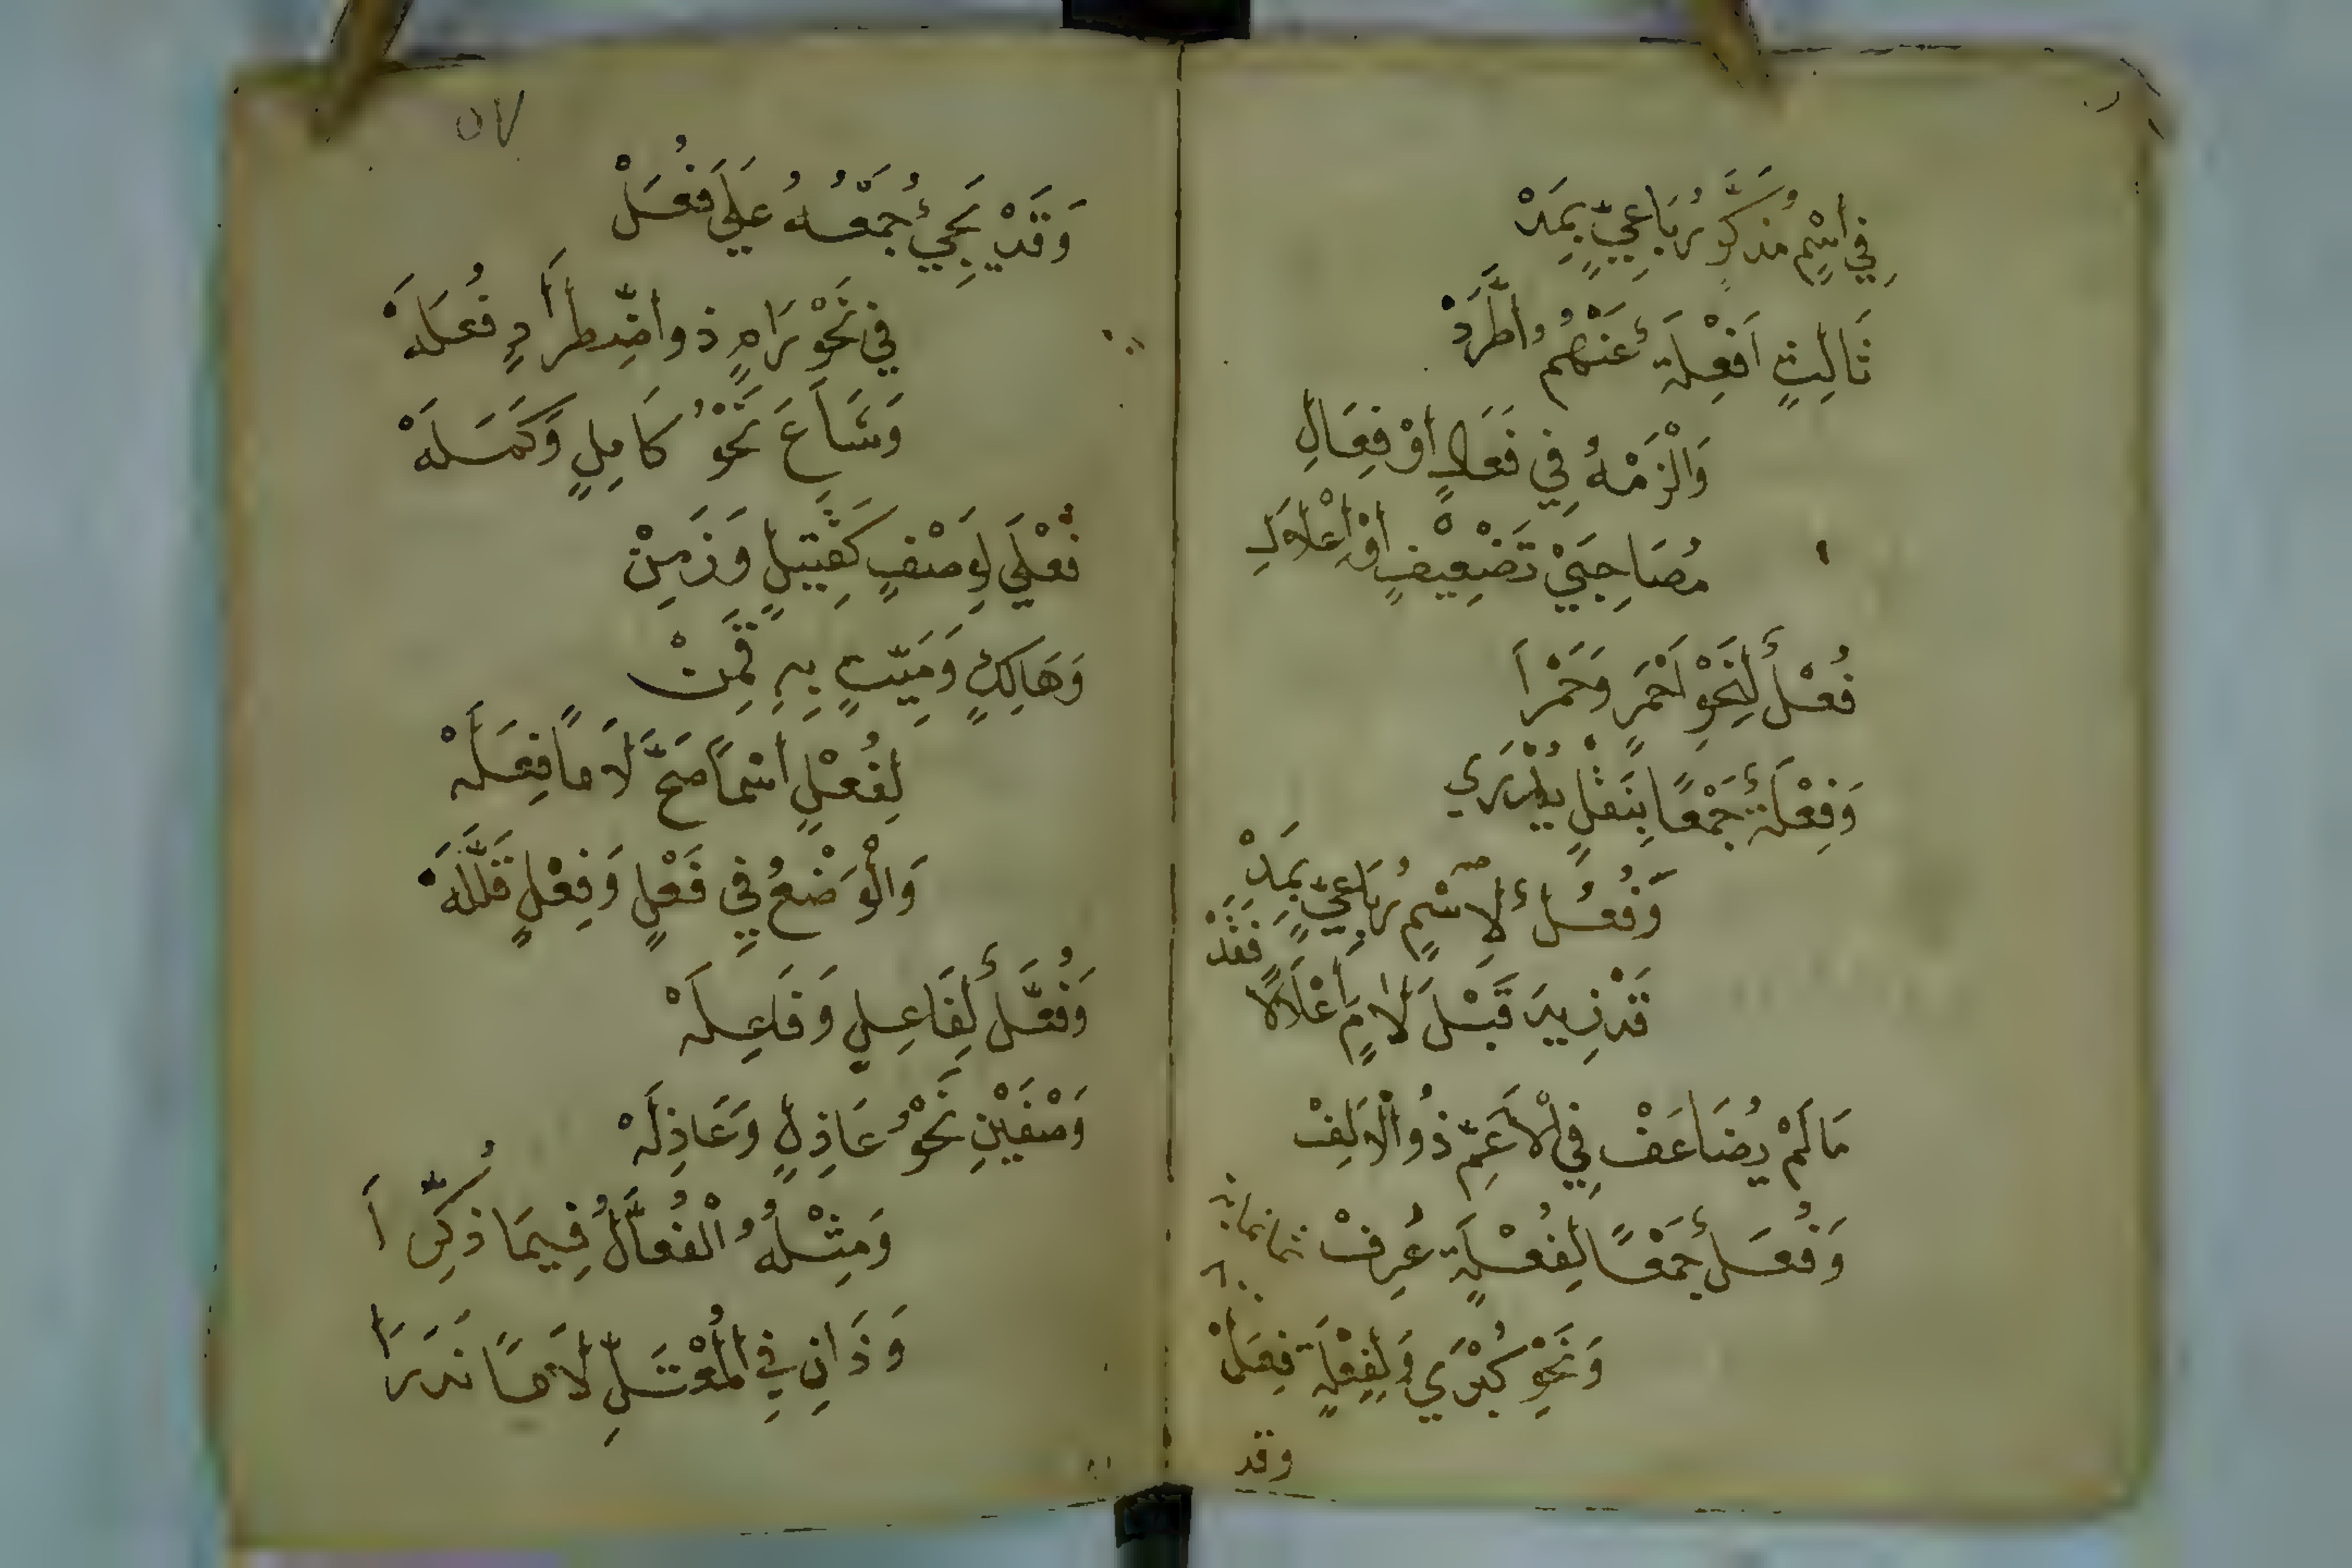 فِي اسْمٍ مُذَكَّرٍ رُبَاعِيٍّ بِمَدْ
ثَالِثٍ اَفْعِلَةُ عَنْهُمُ اطَّرَدْ
وَالْزَمْهُ فِي فَعَالٍ اوْ فِعَالِ
مُصَاحِبَيْ تَضْعِيْفٍ اوْ اِعْلَالِ
فُعْلٌ لِنَحْوِ اَحْمَرٍ وَحَمْرَا
وَفِعْلَةٌ جَمْعًا بِنَقْلٍ يُدْرَي
وَفُعُلٌ لِاسْمٍ رُبَاعِيٍّ بِمَدْ
قَدْ زِيدَ قَبْلَ لَامٍ اعْلَالًا فَقَدْ
مَا لَمْ يُضَاعَفْ فِي الْاَعَمِّ ذُو الْاَلِفْ
وَفُعَلٌ جَمْعًا لِفُعْلَةٍ عُرِفْ
وَنَحْوِ كُبْرَي وَلِفِعْلَةٍ فِعَلْ
وقد
٥٧
وَقَدْ يَجِئُ جَمْعُهُ عَلَي فُعَلْ
فِي نَحْوِ رَامٍ ذو اضِّطرَادٍ فُعَلَهْ
وَشَاعَ نَحْوُ كَامِلٍ وَكَمَلَهْ
فَعْلَي لِوَصْفٍ كَقَتِيلٍ وَزَمِنْ
وَهَالِكٍ وَمَيِّتٍ بِهِ قَمِنْ
لِفُعْلٍ اسْمًا صَحَّ لَامًا فِعَلَهْ
وَالْوَضْعُ فِي فَعْلٍ وَفِعْلٍ قَلَّلَهْ
وَفُعَّلٌ لِفَاعِلٍ وَفَاعِلَهْ
وَصْفَيْنِ نَحْوُ عَاذِلٍ وَعَاذِلَهْ
وَمِثْلُهُ الْفُعَّالُ فِيمَا ذُكِّرَا
وَذَانِ فِي الْمُعْتَلِّ لَامًا نَدَرَا